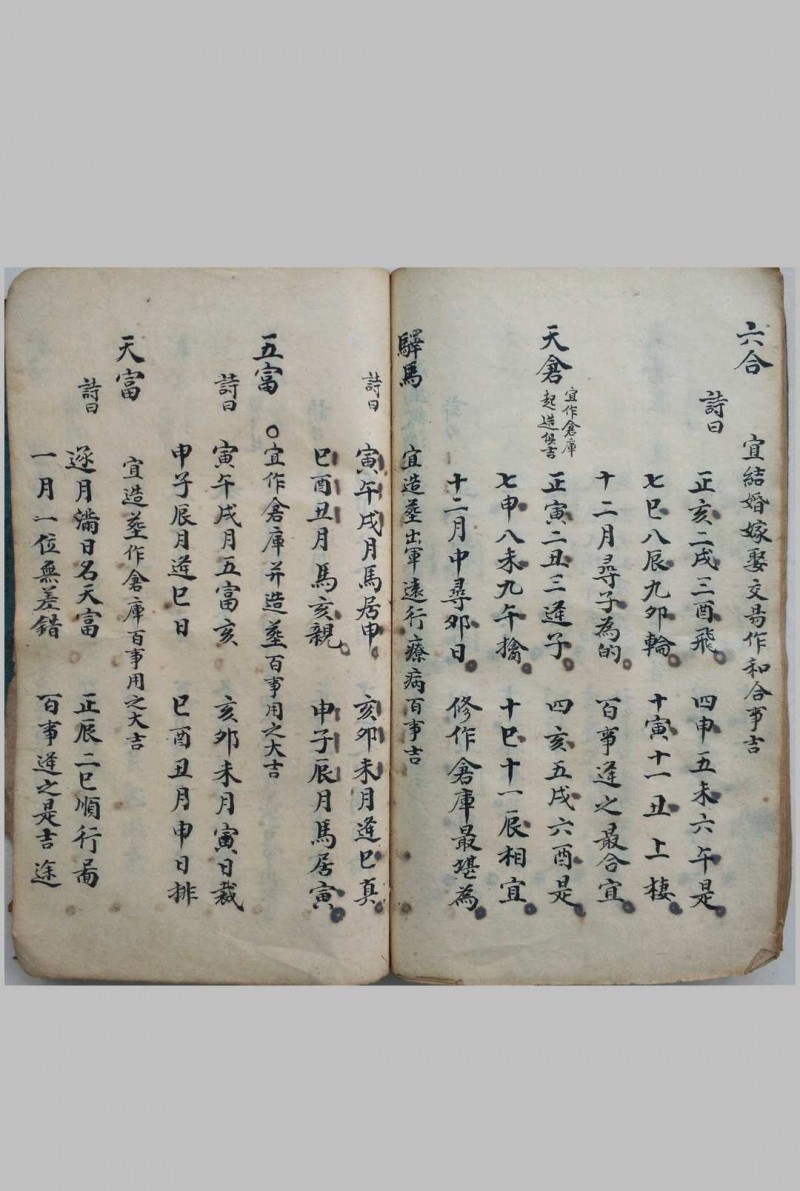 六合
宜結婚嫁娶交易作和合事吉
詩曰
正亥二戌三酉飛 四申五未六午是
七巳八辰九卯輪 十寅十一丑上棲
十二月尋子為的 百事逢之最合宜
天倉
宜作倉庫
起造俱吉
正寅二丑三逢子 四亥五戌六酉是
七申八未九午擒 十巳十一辰相宜
十二月中尋卯日 修作倉庫最堪為
驛馬 宜造葬出軍遠行療病百事吉
詩曰
寅午戌月馬居申 亥卯未月逢巳真
巳酉丑月馬亥親 申子辰月馬居寅
五富 ○宜作倉庫并造葬百事用之大吉
詩曰
寅午戌月五富亥 亥卯未月寅日裁
申子辰月逢巳日 巳酉丑月申日排
天富 宜造葬作倉庫百事用之大吉
詩曰
逐月滿日名天富 正辰二巳順行
一月一位無差錯 百事逢之是吉途